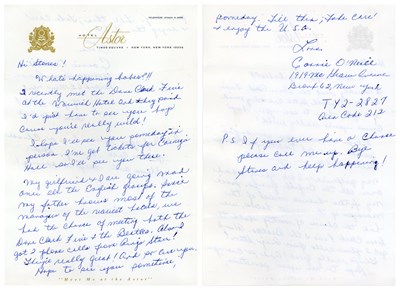 HOTEL
Astor
TIMES SQUARE • NEW YORK, NEW YORK 10036
Hi Stones!
What's happening babes?!!
I recently met the Dave Clark Five
at the Warwick Hotel and they said
I'd just have to see you boys
Cause you're really wild!
I hope I'd see you someday in
person so we got tickets for Carnegie
Hall so I'd see you there.
My girlfriend & I are going mad
over all the English groups. Since
my father knows most of the
managers of the nearest hotels, we
had the chance of meeting both the
Dave Clark Five & the Beatles. Also I
got 2 phone calls from Ringo Starr!
They're really Great! And so are you
Hope to see you sometime,
"Meet Me at the Astor"
someday. Till this, Take Care!
& enjoy the U.S.A.
Love
Connie
1919
Bronx 62, New York
TY2-2827
Area Code 212
P.S. If you ever have a Chance
please call me up. Bye
Stones and keep happening!